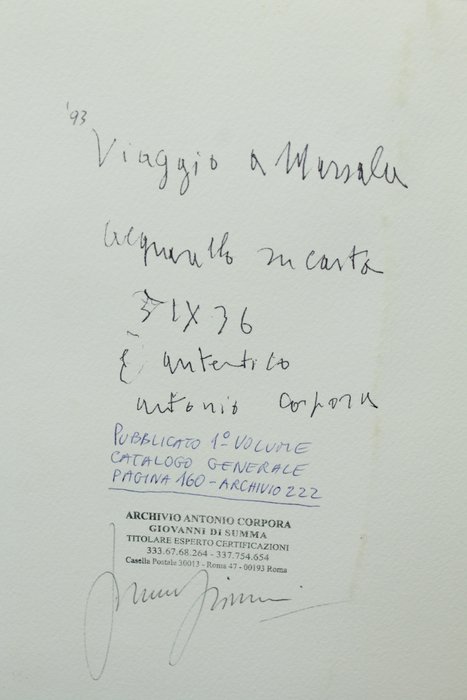 '93
Viaggio a Marsala
acquarello su carta
51X36
È autentico
antonio corpora
PUBBLICATO 1º VOLUME
CATALOGO GENERALE
PAGINA 160 - ARCHIVIO 222
ARCHIVIO ANTONIO CORPORA
GIOVANNI DI SUMMA
TITOLARE ESPERTO CERTIFICAZIONI
333.67.68.264 - 337.754.654
Casella Postale 30013 - Roma 47 - 00193 Roma